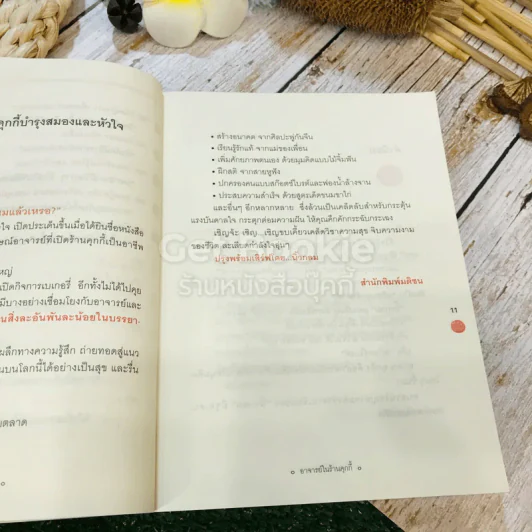 คุกกี้บำรุงสมองและหัวใจ
มแล้วเหรอ?"
ใจ เปิดประเด็นขึ้นเมื่อได้ยินชื่อหนังสือ
ษณ์อาจารย์ที่เปิดร้านคุกกี้เป็นอาชีพ
หญ่
เปิดกิจการเบเกอรี่ อีกทั้งไม่ได้ไปคุย
มีบางอย่างเชื่อมโยงกับอาจารย์และ
นสิ่งละอันพันละน้อยในบรรยา-
ผลึกทางความรู้สึก ถ่ายทอดสู่แนว
นบนโลกนี้ได้อย่างเป็นสุข และรื่น
ตลาด
• สร้างอนาคต จากศิลปะพู่กันจีน
• เรียนรู้รักแท้ จากแม่ของเพื่อน
• เพิ่มศักยภาพตนเอง ด้วยมุมคิดแบบไม้จิ้มฟัน
• ฝึกสติ จากสายหูฟัง
• ปกครองคนแบบสก๊อตช์ไบรต์และฟองน้ำล้างจาน
• ประสบความสำเร็จ ด้วยสูตรเด็ดขนมเค้ก
และอื่นๆ อีกหลากหลาย ซึ่งล้วนเป็นเคล็ดลับสำหรับกระตุ้น
แรงบันดาลใจ กระตุกต่อมความฝัน ให้คุณคึกคักกระฉับกระเฉง
เชิญจ้ะ เชิญ...เชิญขบเคี้ยวเคล็ดวิชาความสุข จิบความงาม
ของชีวิต ละเลียดกำลังใจอุ่นๆ
ปรุงพร้อมเสิร์ฟเดี๋ยวนี้
สำนักพิมพ์มติชน
11
อาจารย์ในร้านคุกกี้
Geniookie
ร้านหนังสือบุ๊คกี้